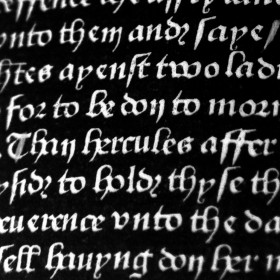 vnto them andɀ ſaye
htes ayenſt two ladi
for to be don to mor
. Than hercules affer
yſidɀ to holdɀ thyſe th
euerence vnto the da
ſelf hauyng don her r